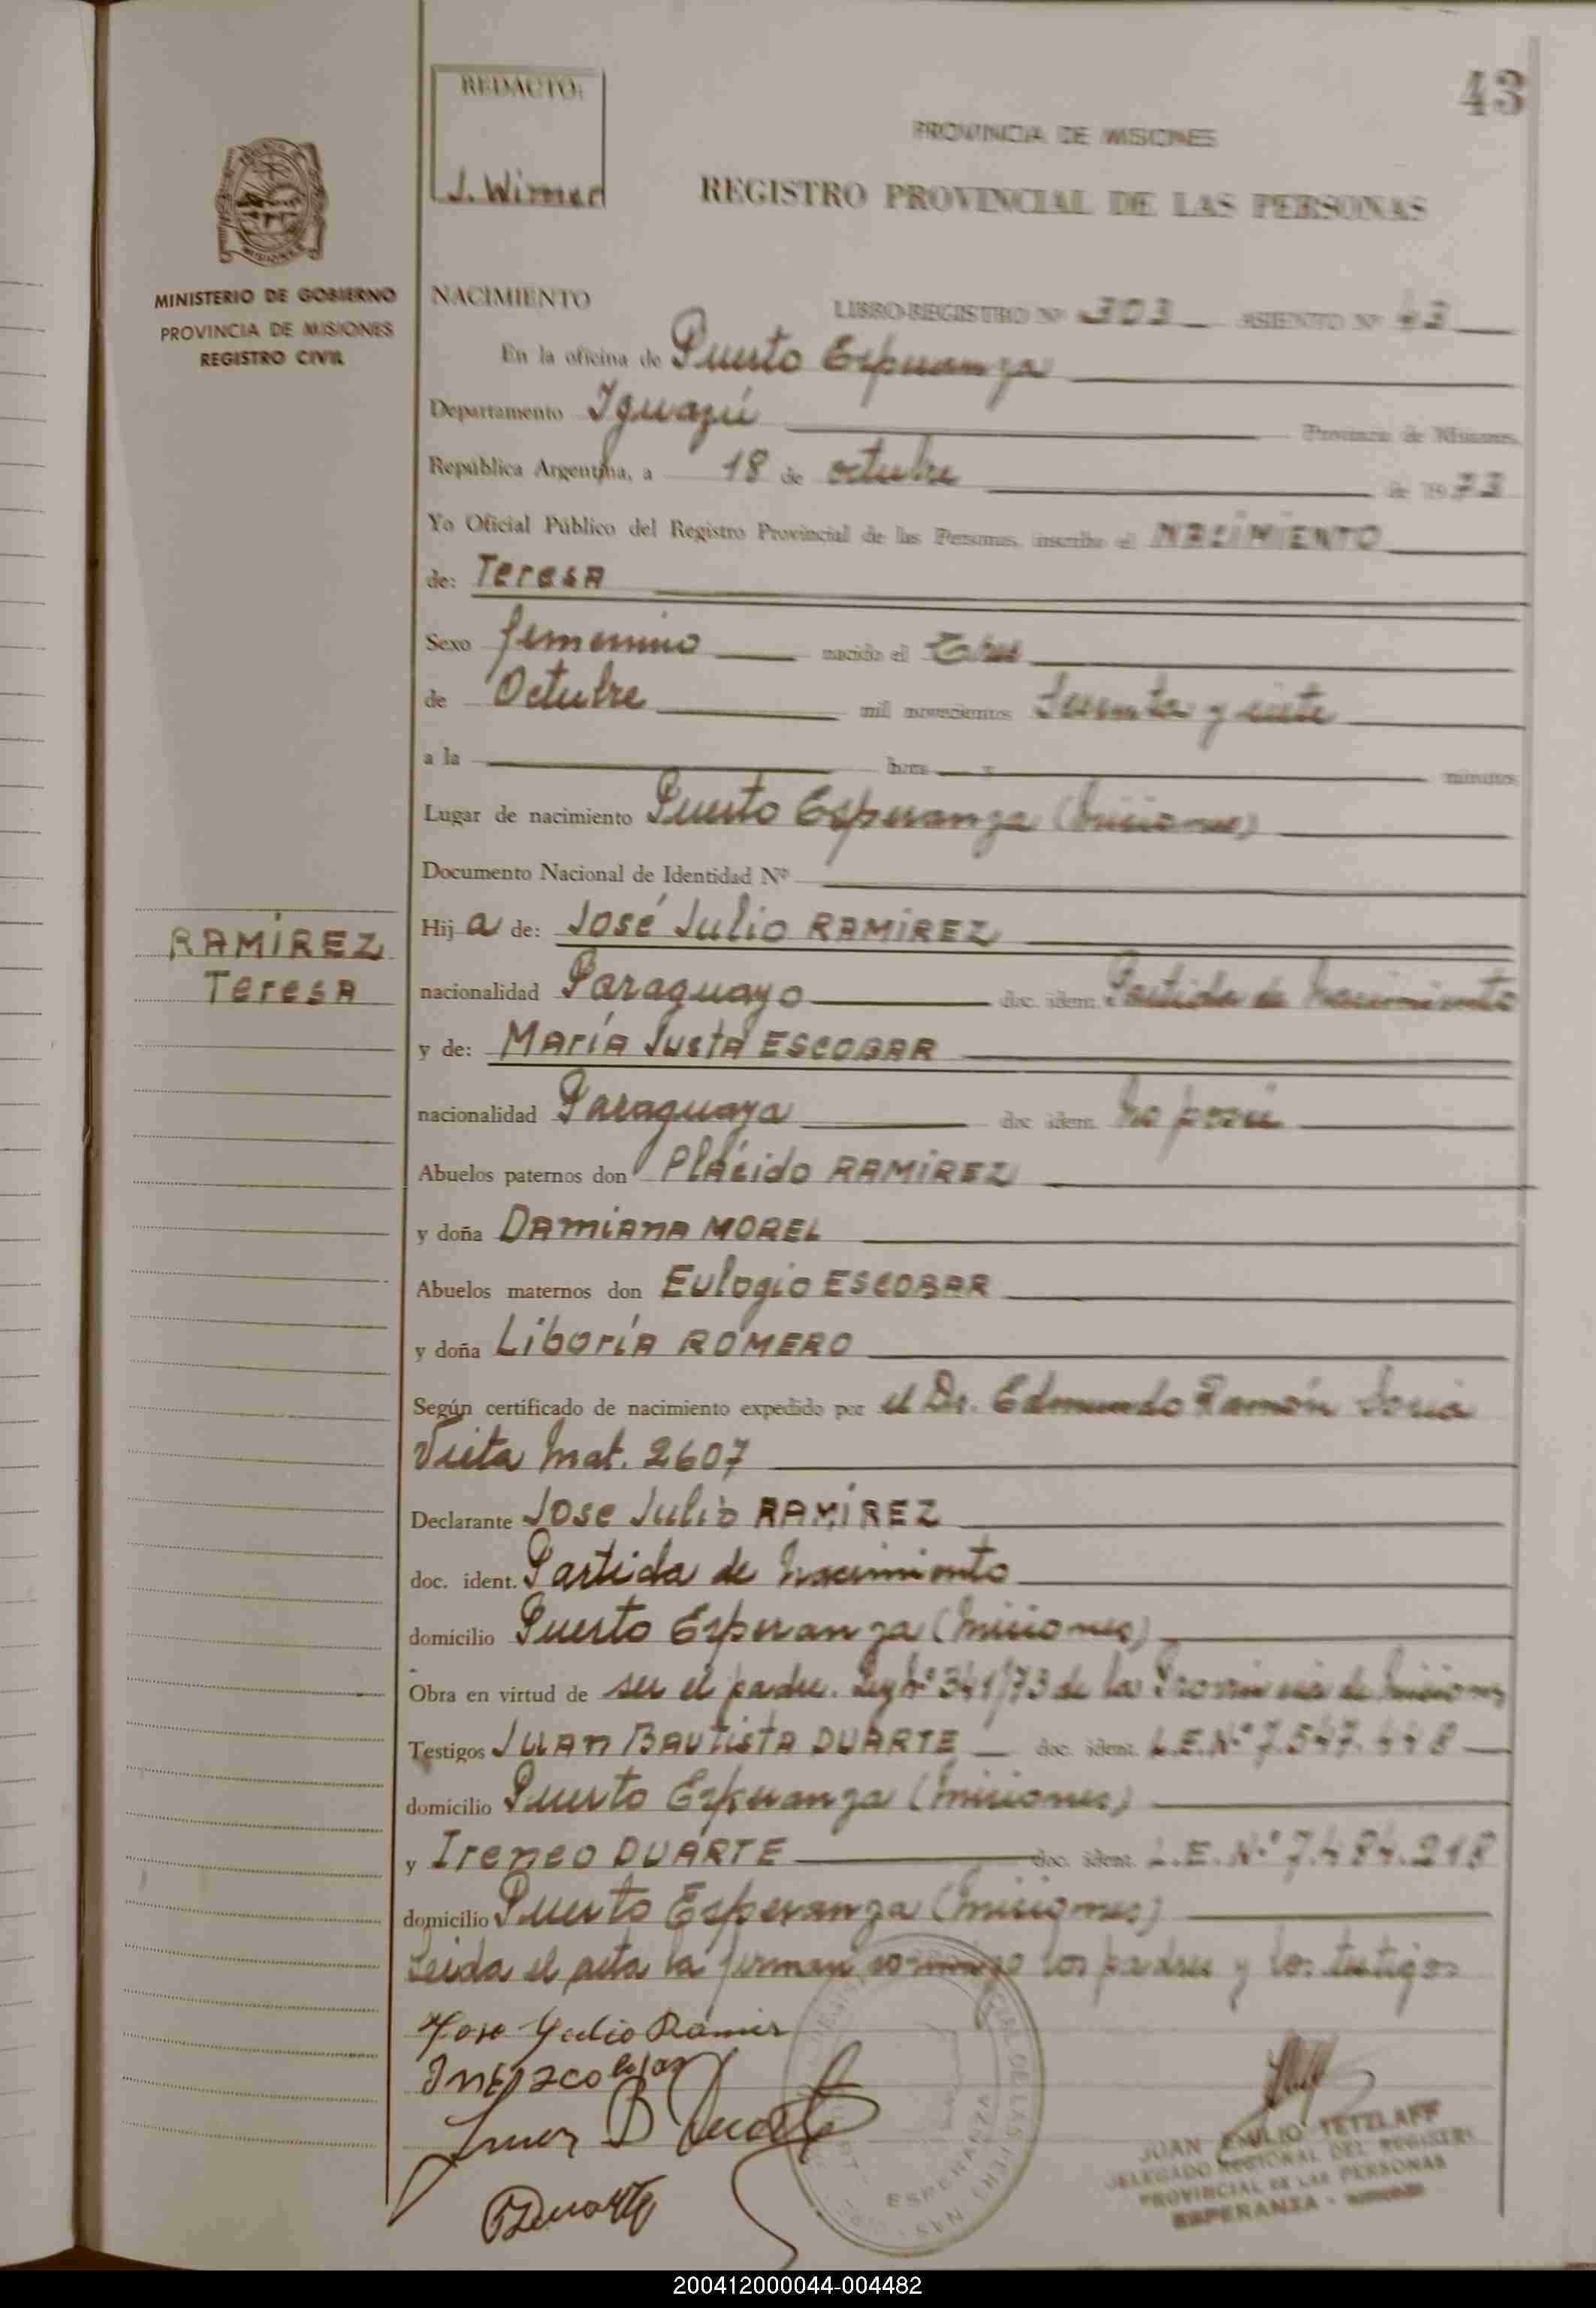 43
REDACTO:
J. Wirner
PROVINCIA DE MISIONES
REGISTRO PROVINCIAL DE LAS PERSONAS
MISIONES
MINISTERIO DE GOBIERNO
PROVINCIA DE MISIONES
REGISTRO CIVIL
NACIMIENTO LIBRO-REGISTRO Nº 303 ASIENTO Nº 43
En la oficina de Puerto Esperanza
Departamento Iguazú Provincia de Misiones,
República Argentina, a 18 de octubre de 1973
Yo Oficial Público del Registro Provincial de las Personas, inscribo el NACIMIENTO
de: Teresa
Sexo femenino nacido el tres
de Octubre mil novecientos sesenta y siete
a la hora y minutos
Lugar de nacimiento Puerto Esperanza (Misiones)
Documento Nacional de Identidad Nº
RAMÍREZ
Teresa
Hij a de: José Julio RAMÍREZ
nacionalidad Paraguayo doc. ident. Partida de Nacimiento
y de: María Justa ESCOBAR
nacionalidad Paraguaya doc. ident. No posee
Abuelos paternos don Plácido RAMÍREZ
y doña Damiana MOREL
Abuelos maternos don Eulogio ESCOBAR
y doña Liboría ROMERO
Según certificado de nacimiento expedido por el Dr. Edmundo Ramón Soria
Vieta Mat. 2607
Declarante Jose Julio RAMÍREZ
doc. ident. Partida de Nacimiento
domicilio Puerto Esperanza (Misiones)
Obra en virtud de ser el padre. Ley Nº 341/73 de la Provincia de Misiones
Testigos Juan Bautista DUARTE doc. ident. L.E. Nº 7.547.448
domicilio Puerto Esperanza (Misiones)
y Ireneo DUARTE doc. ident. L.E. Nº 7.484.218
domicilio Puerto Esperanza (Misiones)
Leida el acta la firman conmigo los padres y los testigos
Jose Julio Ramires
Juan B Duarte
Duarte
ESPERANZA
JUAN EMILIO TETZLAFF
DELEGADO REGIONAL DEL REGISTRO
PROVINCIAL DE LAS PERSONAS
ESPERANZA - MISIONES
200412000044-004482